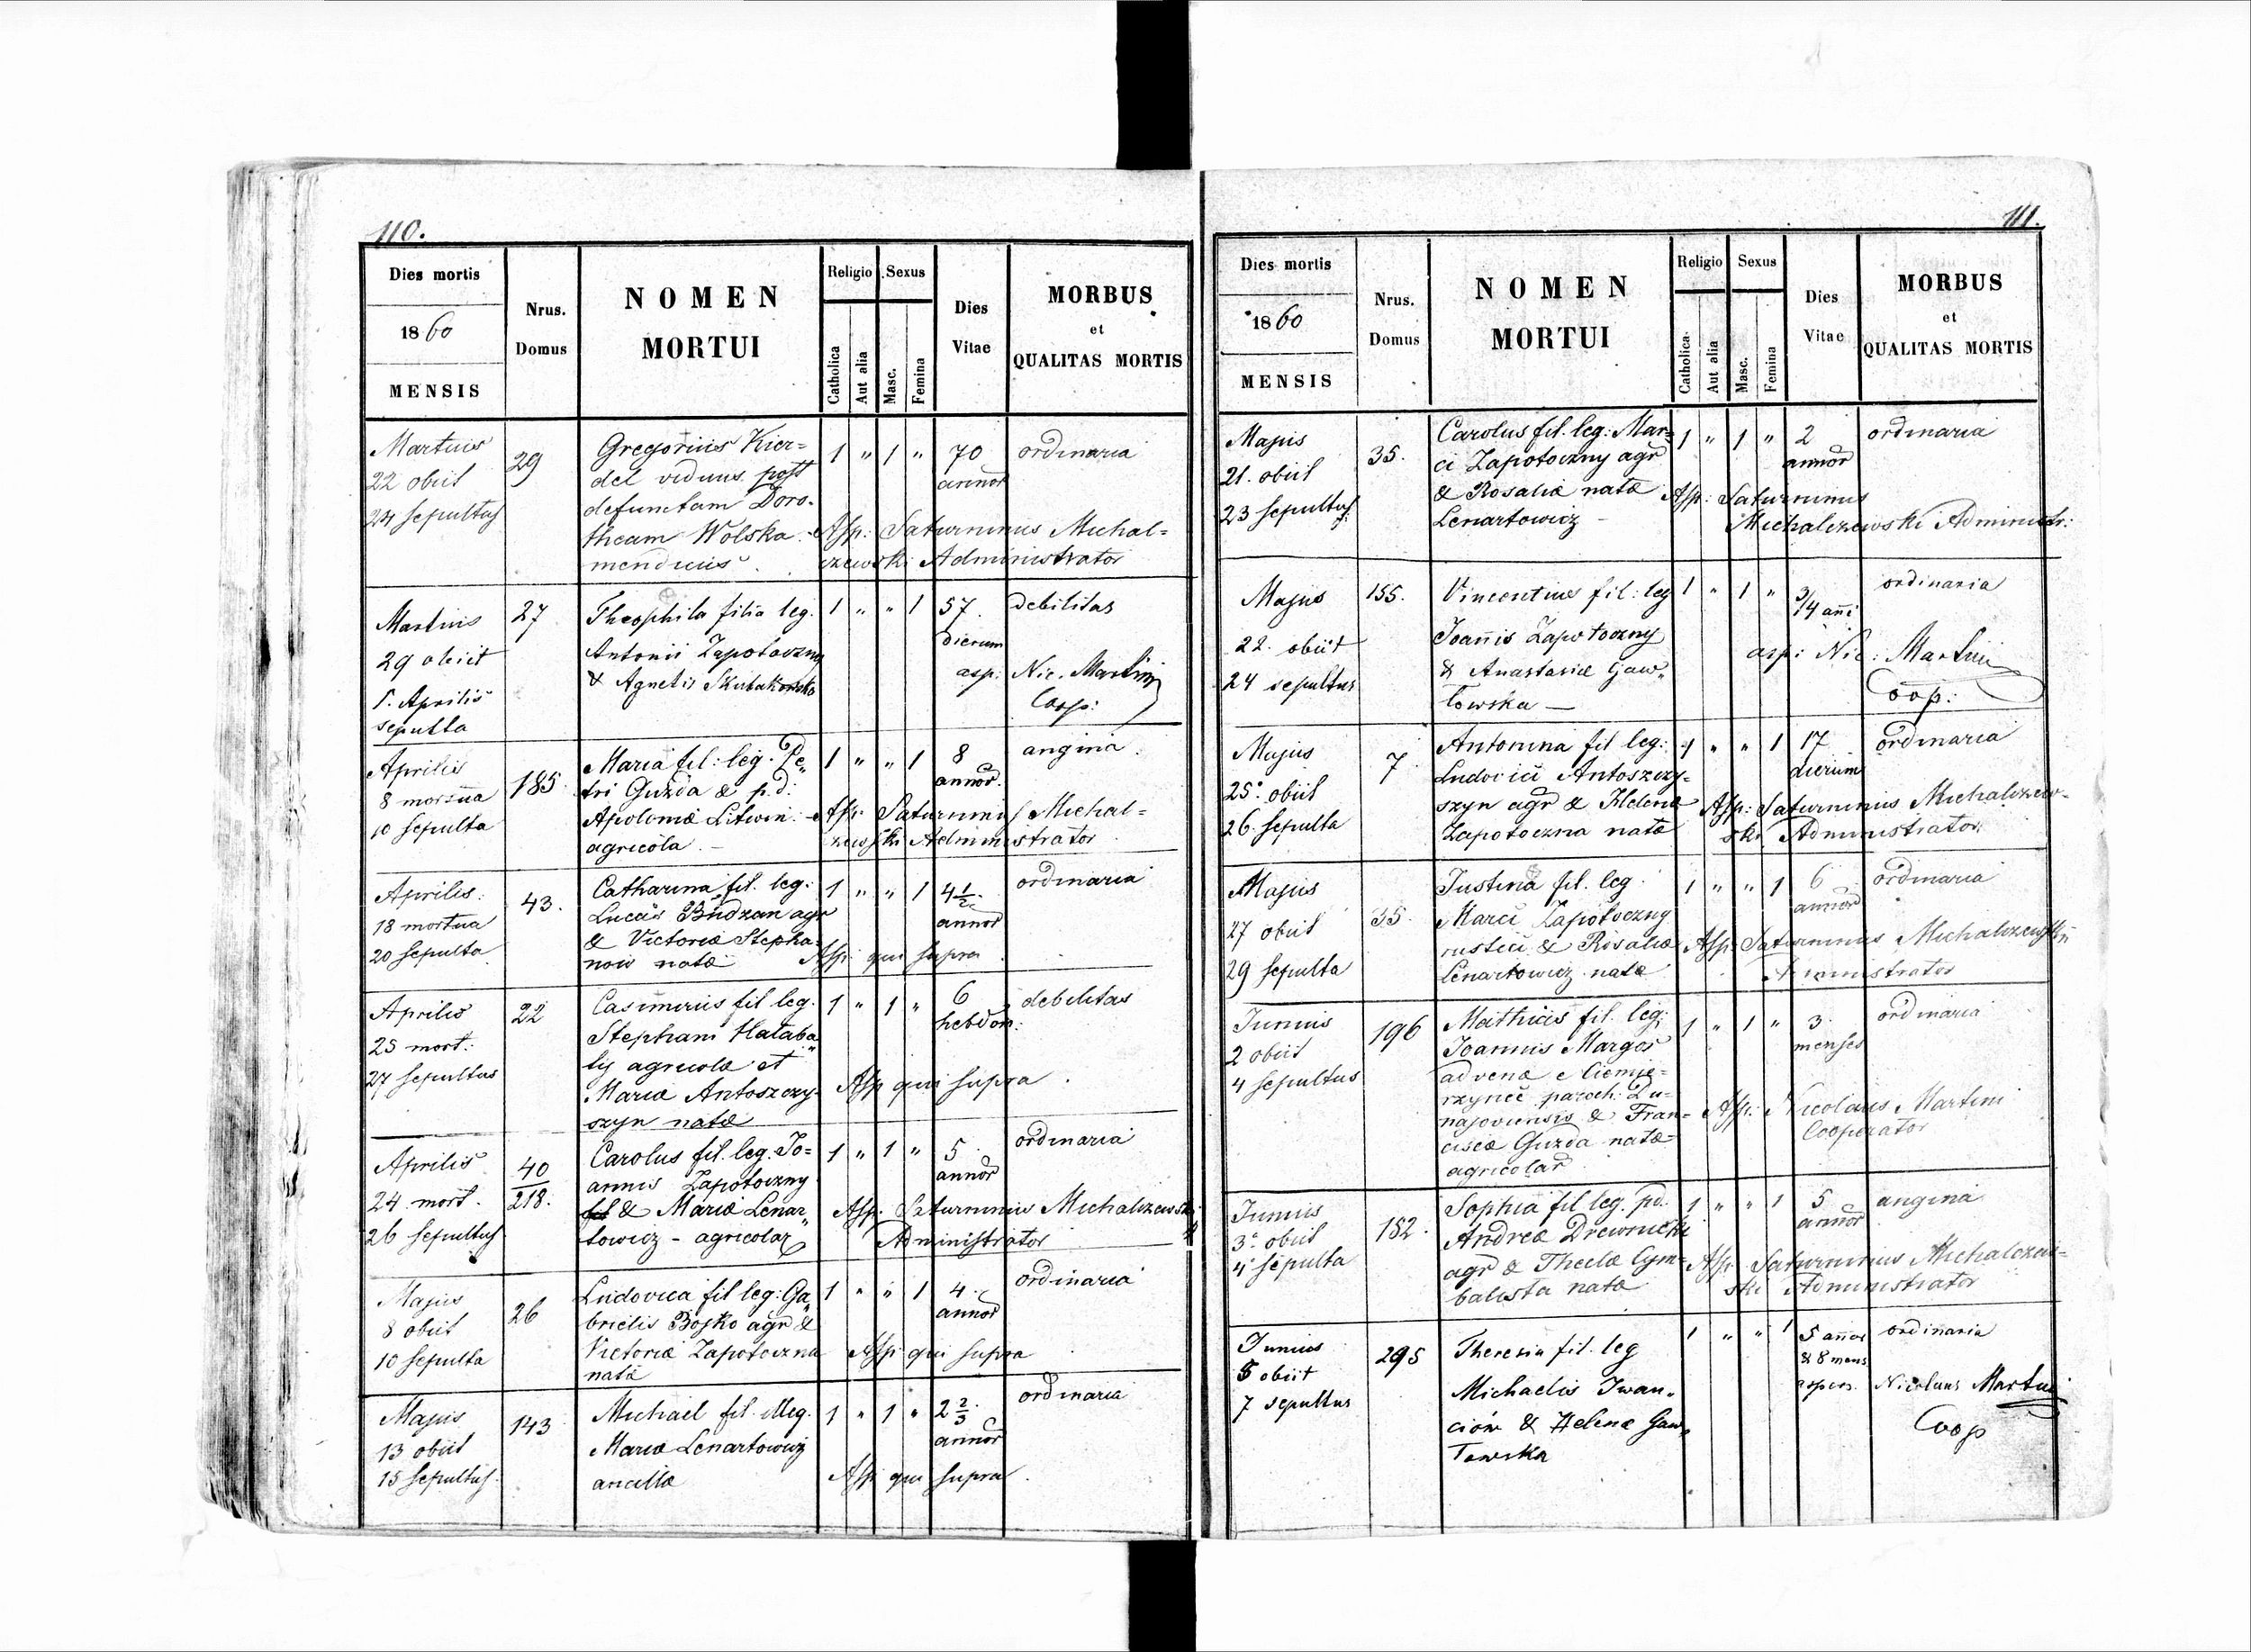 110.
Dies mortis
1860
MENSIS
Nrus.
Domus
NOMEN
MORTUI
Religio
Sexus
Catholica
Aut alia
Masc.
Femina
Dies
Vitae
MORBUS
et
QUALITAS MORTIS
Martius
22 obiit
24 sepultus
29
Gregorius Kier=
del viduus post
defunctam Doro-
theam Wolska
mendicus
1 " 1 "
70
annor
ordinaria
Asp: Saturninus Michal=
czewski Administrator
Martius
29 obiit
1. Aprilis
sepulta
27
Theophila filia leg.
Antonii Zapotoczny
& Agnetis Skubakowska
1 " " 1
57.
dierum
debilitas
asp: Nic. Martini
Coop:
Aprilis
8 morsua
10 sepulta
185
Maria fil: leg. Pe„
tri Guzda & p.d:
Apolonia Litwin
agricola
1 " " 1
8
annor.
angina
Asp: Saturninus Michal=
czewski Administrator
Aprilis
18 mortua
20 sepulta
43.
Catharina fil. leg:
Lucas Budzan agr
& Victoria Stepha
now nata
1 " " 1
4 1/2
annor
ordinaria
Asp: qui supra
Aprilis
25 mort:
27 sepultus
22
Casimirus fil leg.
Stephani Hataba„
ly agricola et
Maria Antoszczy-
szyn nata
1 " 1 "
6
hebdom:
debilitas
Asp qui supra
Aprilis
24 mort.
26 sepultus
40
218.
Carolus fil. leg. Jo=
annis Zapotoczny
& Maria Lenar„
towicz - agricolar
1 " 1 "
5
annor
ordinaria
Asp. Saturninus Michalczewski
Administrator
Majus
8 obiit
10 sepulta
26
Ludovica fil leg: Ga„
brielis Bojko agr &
Victoria Zapotoczna
nata
1 " " 1
4.
annor
ordinaria
Asp qui supra
Majus
13 obiit
15 sepultus
143
Michael fil. illeg.
Maria Lenartowicz
ancilla
1 " 1 "
2 2/3
annor
ordinaria
Asp qui supra
111.
Dies mortis
1860
MENSIS
Nrus.
Domus
NOMEN
MORTUI
Religio
Sexus
Catholica
Aut alia
Masc.
Femina
Dies
Vitae
MORBUS
et
QUALITAS MORTIS
Majus
21. obiit
23 sepultus
35.
Carolus fil. leg: Mar=
ci Zapotoczny agr
& Rosalia nata
Lenartowicz -
1 " 1 "
2
annor
ordinaria
Asp: Saturninus
Michalczewski Administr:
Majus
22. obiit
24 sepultus
155.
Vincentius fil: leg
Joanis Zapotoczny
& Anastasia Gaw„
lowska —
1 " 1 "
3/4 ani
ordinaria
asp: Nic: Martini
Coop:
Majus
25. obiit
26. sepulta
7
Antonina fil leg:
Ludovici Antoszczy-
szyn agr & Helena
Zapotoczna nata
1 " " 1
17
dierum
ordinaria
Asp: Saturninus Michalczew-
ski Administrator
Majus
27 obiit
29 sepulta
35.
Justina fil. leg.
Marci Zapotoczny
rustici & Rosalia
Lenartowicz nata
1 " " 1
6
annor
ordinaria
Asp: Saturninus Michalczewski
Administrator
Junius
2 obiit
4 sepultus
196
Mathias fil. leg:
Joannis Marges
advena Niemie=
rzynce paroch. Du=
najoviensis & Fran=
cisca Guzda nata
agricolar
1 " 1 "
3
menses
ordinaria
Asp: Nicolaus Martini
Cooperator
Junius
3. obiit
4 sepulta
152.
Sophia fil leg. pd:
Andrea Drewnicki
agr & Thecla Cym=
balista nata
1 " " 1
5
annor
angina
Asp Saturninus Michalczew=
ski Administrator
Junius
5 obiit
7 sepultus
295
Theresia fil. leg
Michaelis Iwan„
ciów & Helena Gaw„
lowska
1 " " 1
5 anor
& 8 mens
ordinaria
aspers. Nicolaus Martini
Coop